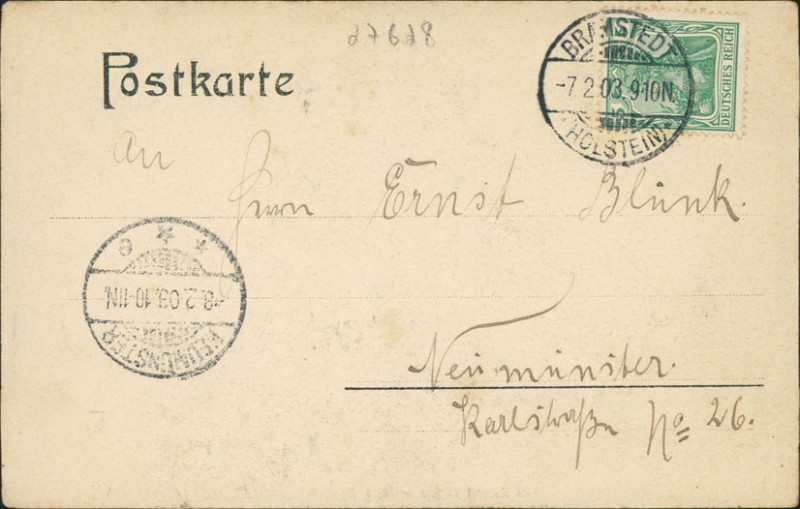 27678
Postkarte
BRAMSTEDT
-7.2.03.9-10N.
(HOLSTEIN)
DEUTSCHES REICH
An
Herrn Ernst Blunk.
* * e
-8.2.03.10-11N.
NEUMÜNSTER
Neumünster.
Karlstraße No 26.